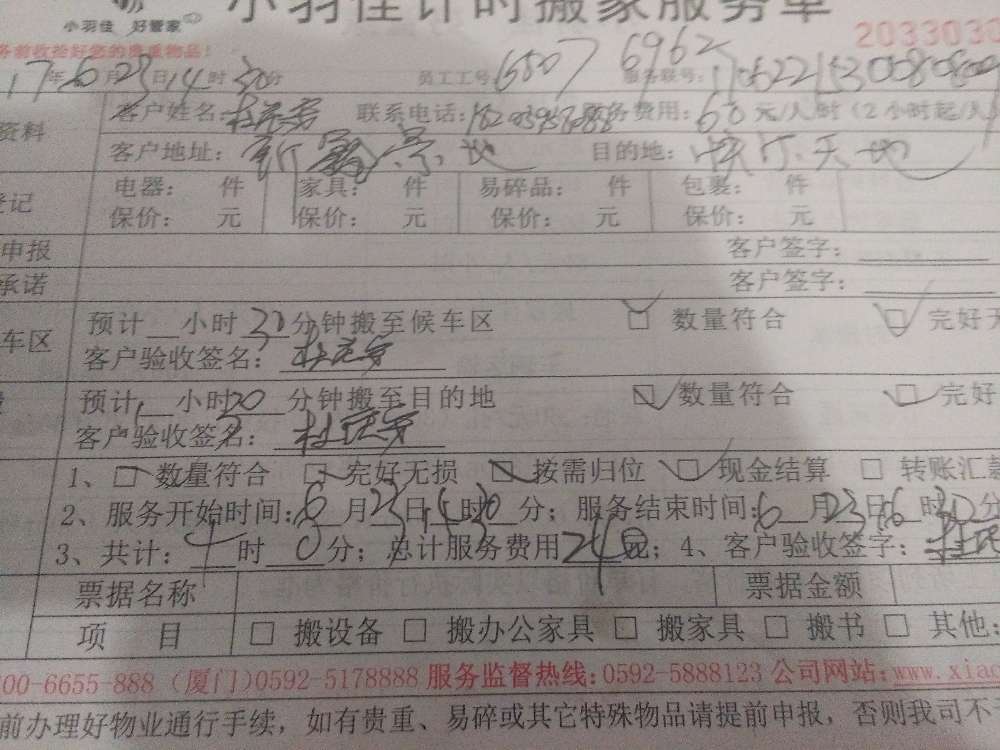 小羽佳计时搬家服务单
小羽佳 好管家
务前收拾好您的贵重物品! 2033030
17年6月23日14时30分 员工工号6507 6962 服务联号:
资料 客户姓名: 联系电话: 服务费用:60元/人/时(2小时起/人
客户地址: 新景地 目的地: 天地
登记 电器: 件 家具: 件 易碎品: 件 包裹: 件
保价: 元 保价: 元 保价: 元 保价: 元
申报 客户签字:
承诺 客户签字:
车区 预计__小时30分钟搬至候车区 □ 数量符合 □ 完好无
客户验收签名:
预计1小时20分钟搬至目的地 □ 数量符合 □ 完好
客户验收签名:
1、□ 数量符合 □ 完好无损 □ 按需归位 □ 现金结算 □ 转账汇款
2、服务开始时间:6月23日14时30分;服务结束时间:6月23日16时30分
3、共计:4时0分;总计服务费用240元;4、客户验收签字:
票据名称 票据金额
项 目 □ 搬设备 □ 搬办公家具 □ 搬家具 □ 搬书 □ 其他:
00-6655-888 (厦门)0592-5178888 服务监督热线:0592-5888123 公司网站:www.xiao
前办理好物业通行手续,如有贵重、易碎或其它特殊物品请提前申报,否则我司不